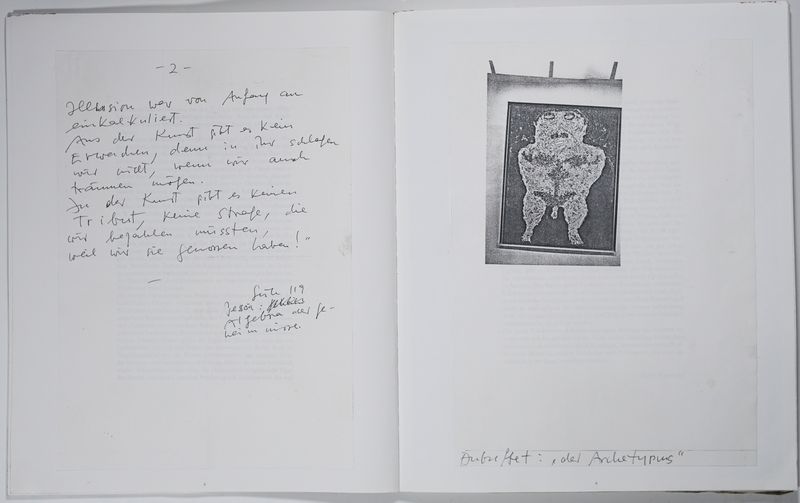 - 2 -
Illusion war von Anfang an
einkalkuliert.
Aus der Kunst gibt es kein
Erwachen, denn in ihr schlafen
wir nicht, wenn wir auch
träumen mögen.
In der Kunst gibt es keinen
Tribut, keine Strafe, die
wir bezahlen müssten,
weil wir sie genossen haben!"
—
Seite 119
Algebra der Ge-
heimnisse.
Dubuffet: „der Archetypus"